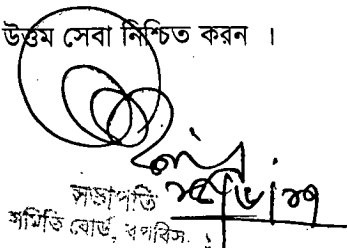 উত্তম সেবা নিশ্চিত করন ।
সভাপতি
সমিতি বোর্ড, বপবিস. ১